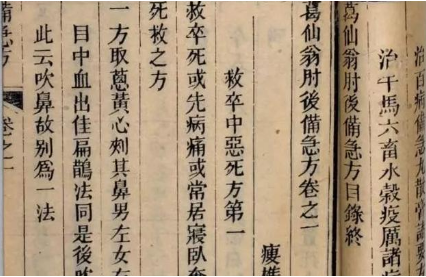 治百病備急丸散膏諸要方
治牛馬六畜水穀疫厲諸病
葛仙翁肘後備急方目錄終
葛仙翁肘後備急方卷之一
救卒中惡死方第一
救卒死或先病痛或常居寢臥奄
死救之方
一方取葱黃心刺其鼻男左女右
目中血出佳扁鵲法同是後吹
此云吹鼻故別為一法
備急方
卷之一